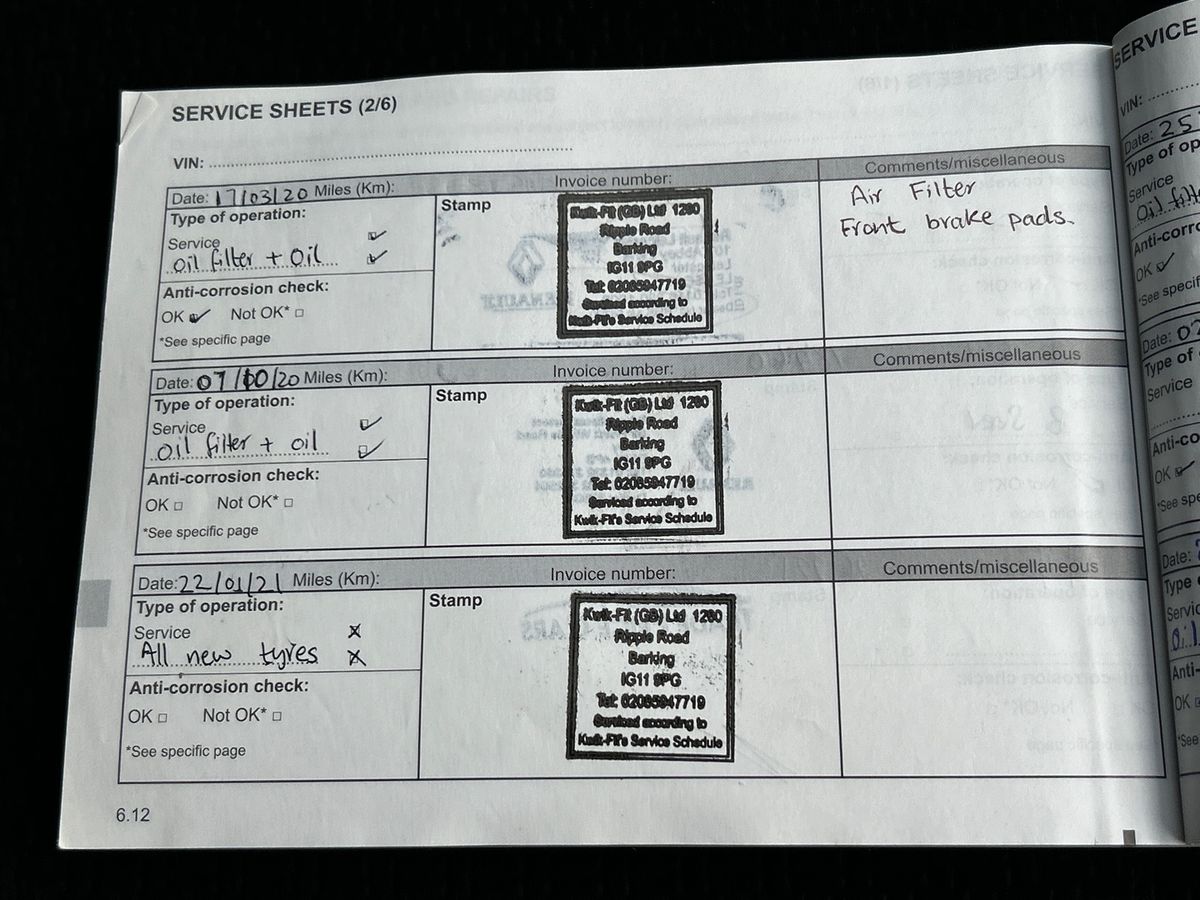 SERVICE SHEETS (2/6)
VIN:
Date: 17/03/20 Miles (Km):
Invoice number:
Comments/miscellaneous
Type of operation:
Service
Oil filter + Oil
Anti-corrosion check:
OK Not OK*
*See specific page
Stamp
Kwik-Fit (GB) Ltd 1280
Ripple Road
Barking
IG11 9PG
Tel: 02085947719
Serviced according to
Kwik-Fit's Service Schedule
Air Filter
Front brake pads.
Date: 07/ /20 Miles (Km):
Invoice number:
Comments/miscellaneous
Type of operation:
Service
Oil filter + oil
Anti-corrosion check:
OK Not OK*
*See specific page
Stamp
Kwik-Fit (GB) Ltd 1280
Ripple Road
Barking
IG11 9PG
Tel: 02085947719
Serviced according to
Kwik-Fit's Service Schedule
Date: 22/01/21 Miles (Km):
Invoice number:
Comments/miscellaneous
Type of operation:
Service
All new tyres
Anti-corrosion check:
OK Not OK*
*See specific page
Stamp
Kwik-Fit (GB) Ltd 1280
Ripple Road
Barking
IG11 9PG
Tel: 02085947719
Serviced according to
Kwik-Fit's Service Schedule
6.12
SERVICE
VIN:
Date: 25
Type of op
Service
Oil filt
Anti-corro
OK
*See specif
Date: 0
Type of
Service
Anti-co
OK
*See spe
Date:
Type
Servic
Oil
Anti-
OK
*See